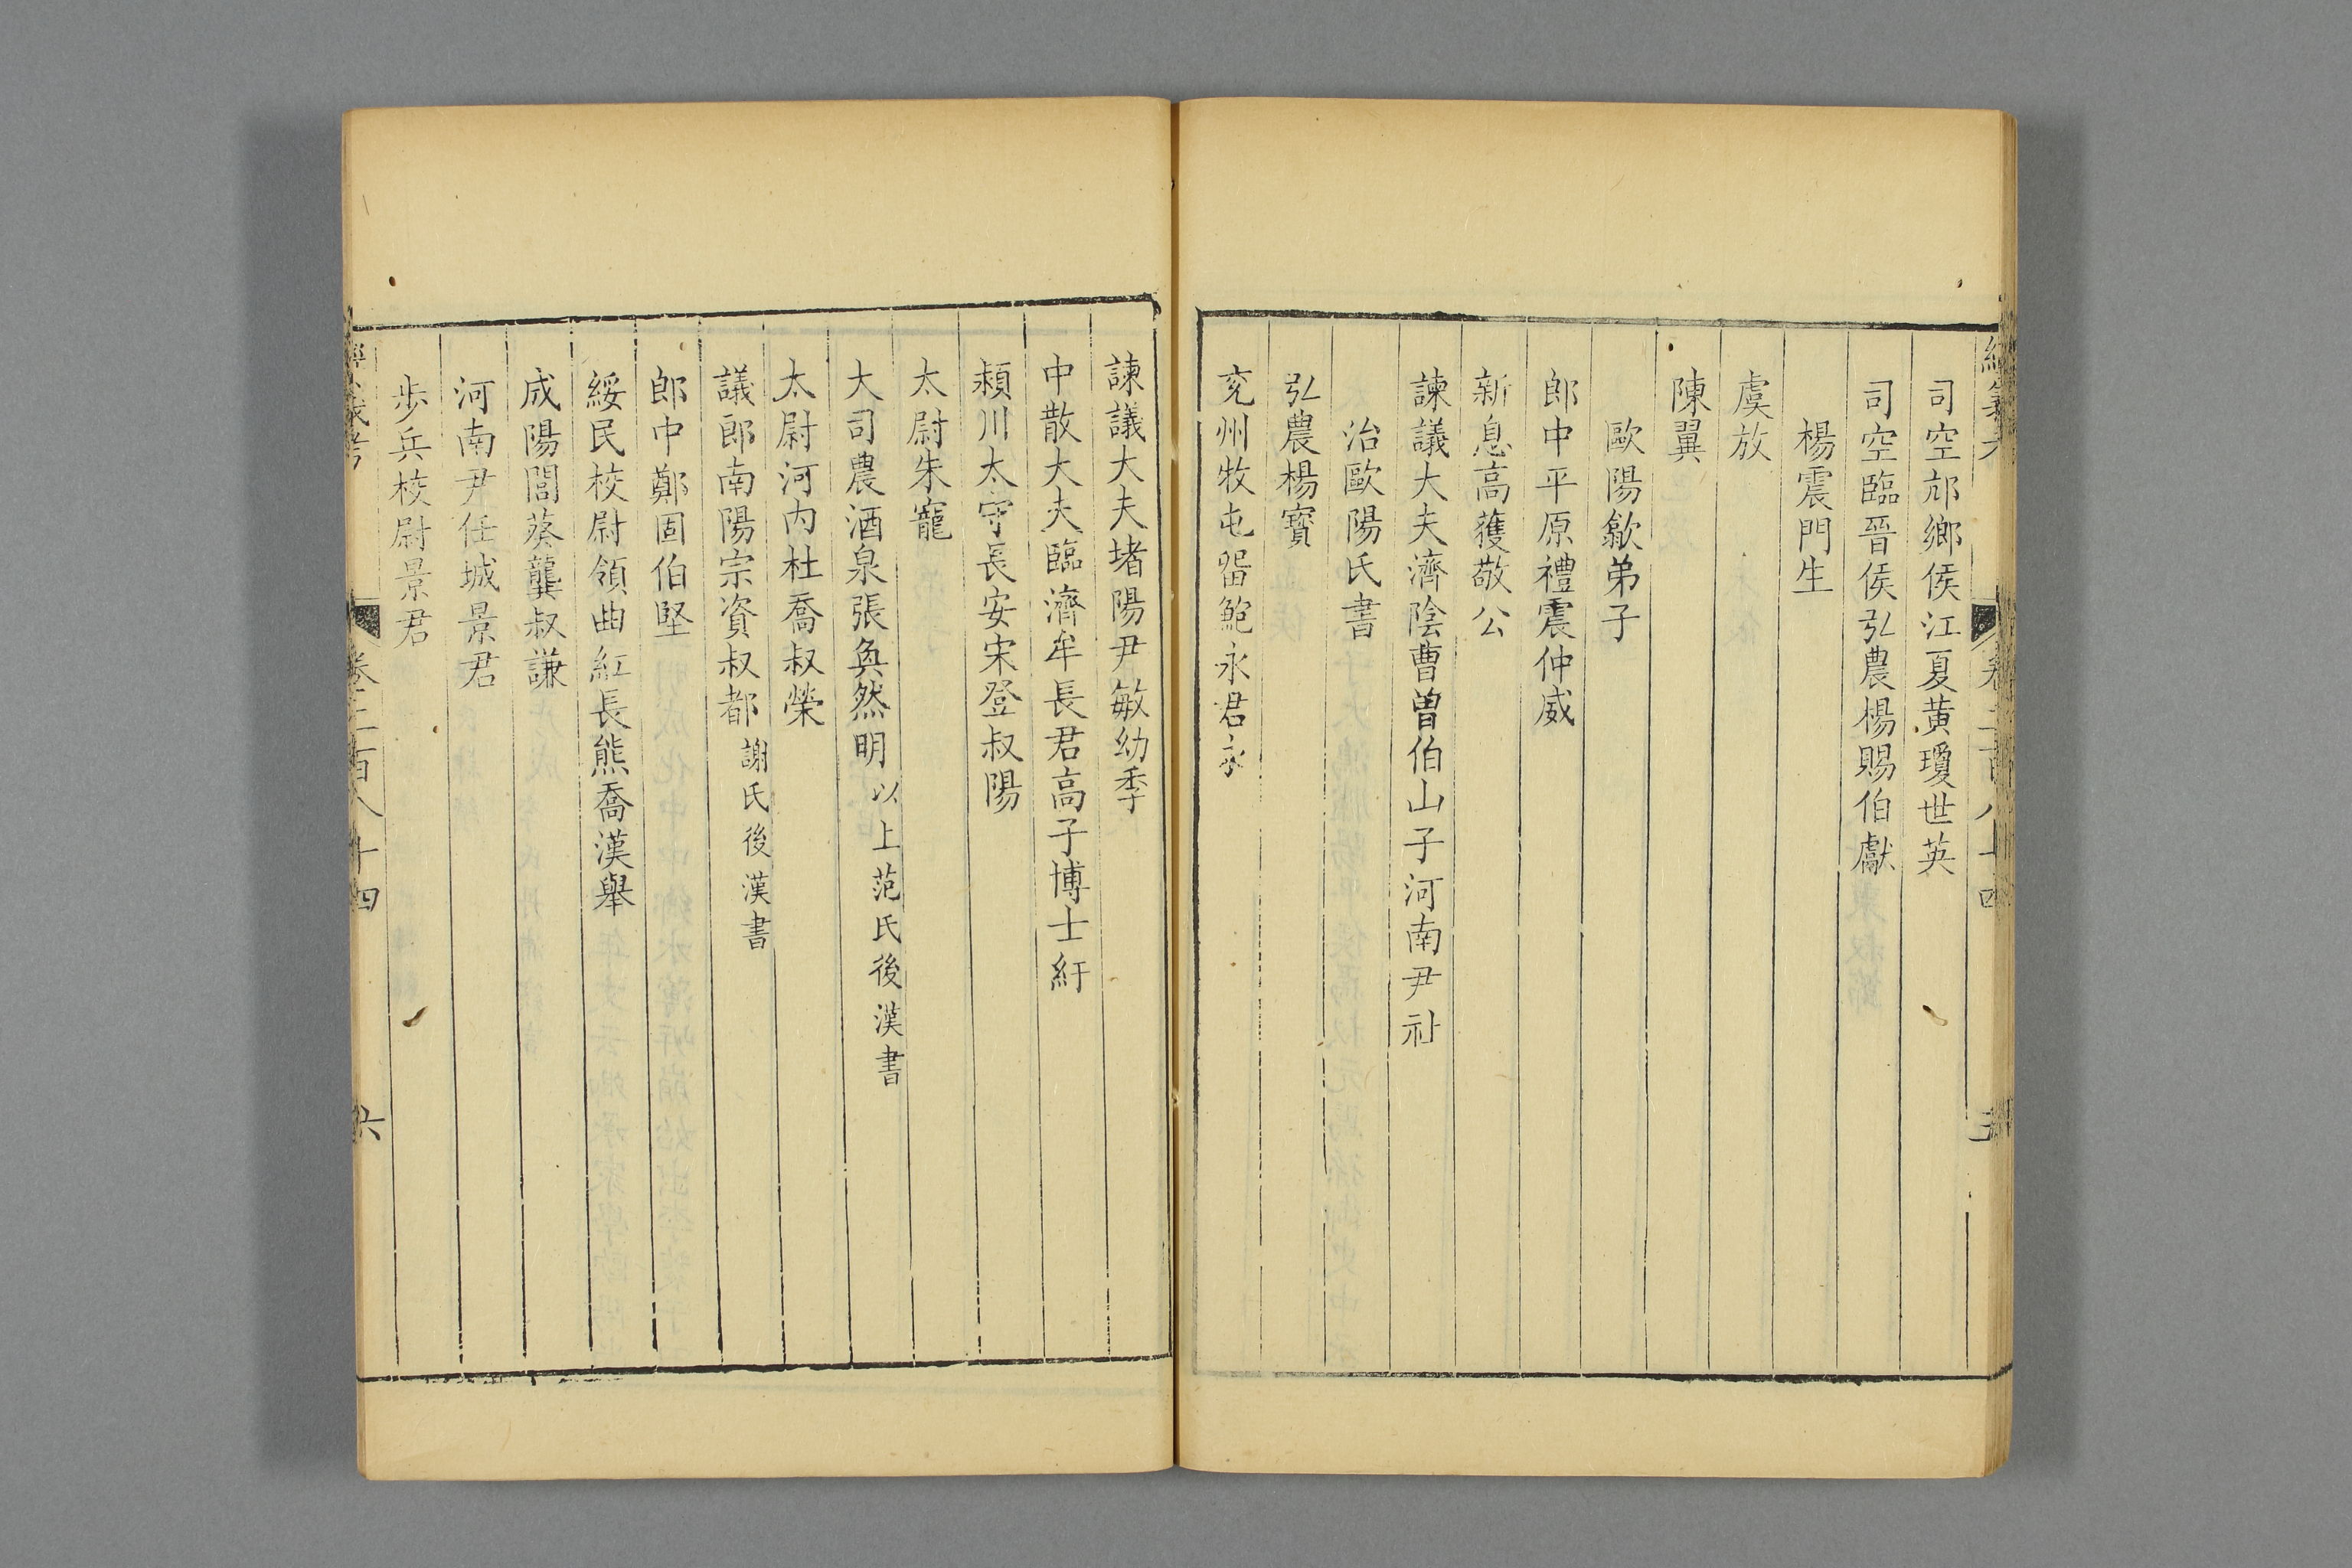 司空邟鄉侯江夏黃瓊世英
司空臨晉侯弘農楊賜伯獻
楊震門生
虞放
陳翼
歐陽歙弟子
郎中平原禮震仲威
新息高獲敬公
諫議大夫濟陰曹曾伯山子河南尹祉
治歐陽氏書
弘農楊寶
兗州牧屯留鮑永君永
諫議大夫堵陽尹敏幼季
中散大夫臨濟牟長君高子博士紆
潁川太守長安宋登叔陽
太尉朱寵
大司農酒泉張奐然明以上范氏後漢書
太尉河內杜喬叔榮
議郎南陽宗資叔都謝氏後漢書
郎中鄭固伯堅
綏民校尉領曲紅長熊喬漢舉
成陽閭葵龔叔謙
河南尹任城景君
步兵校尉景君
卷二百八十四
六